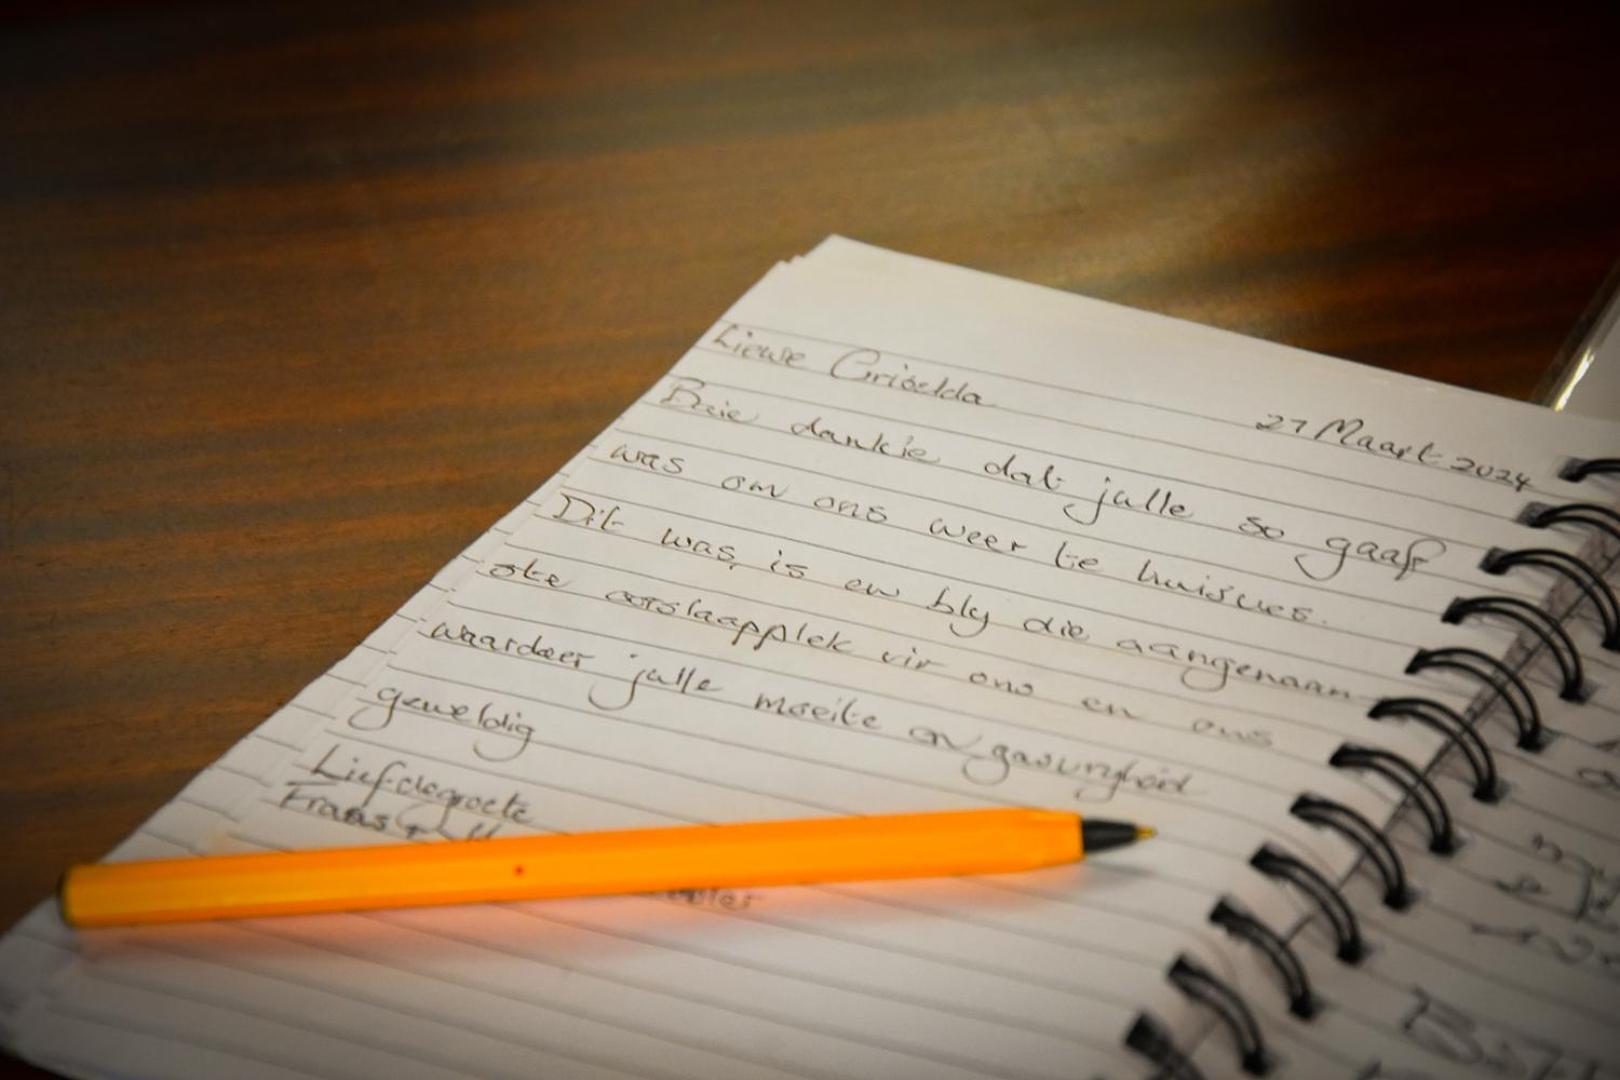 27 Maart 2024
Liewe Griselda
Baie dankie dat julle so gaaf
was om ons weer te huisves.
Dit was, is en bly die aangenaam
ste oorslaapplek vir ons en ons
waardeer julle moeite en gasvryheid
geweldig
Liefdegroete
Frans &